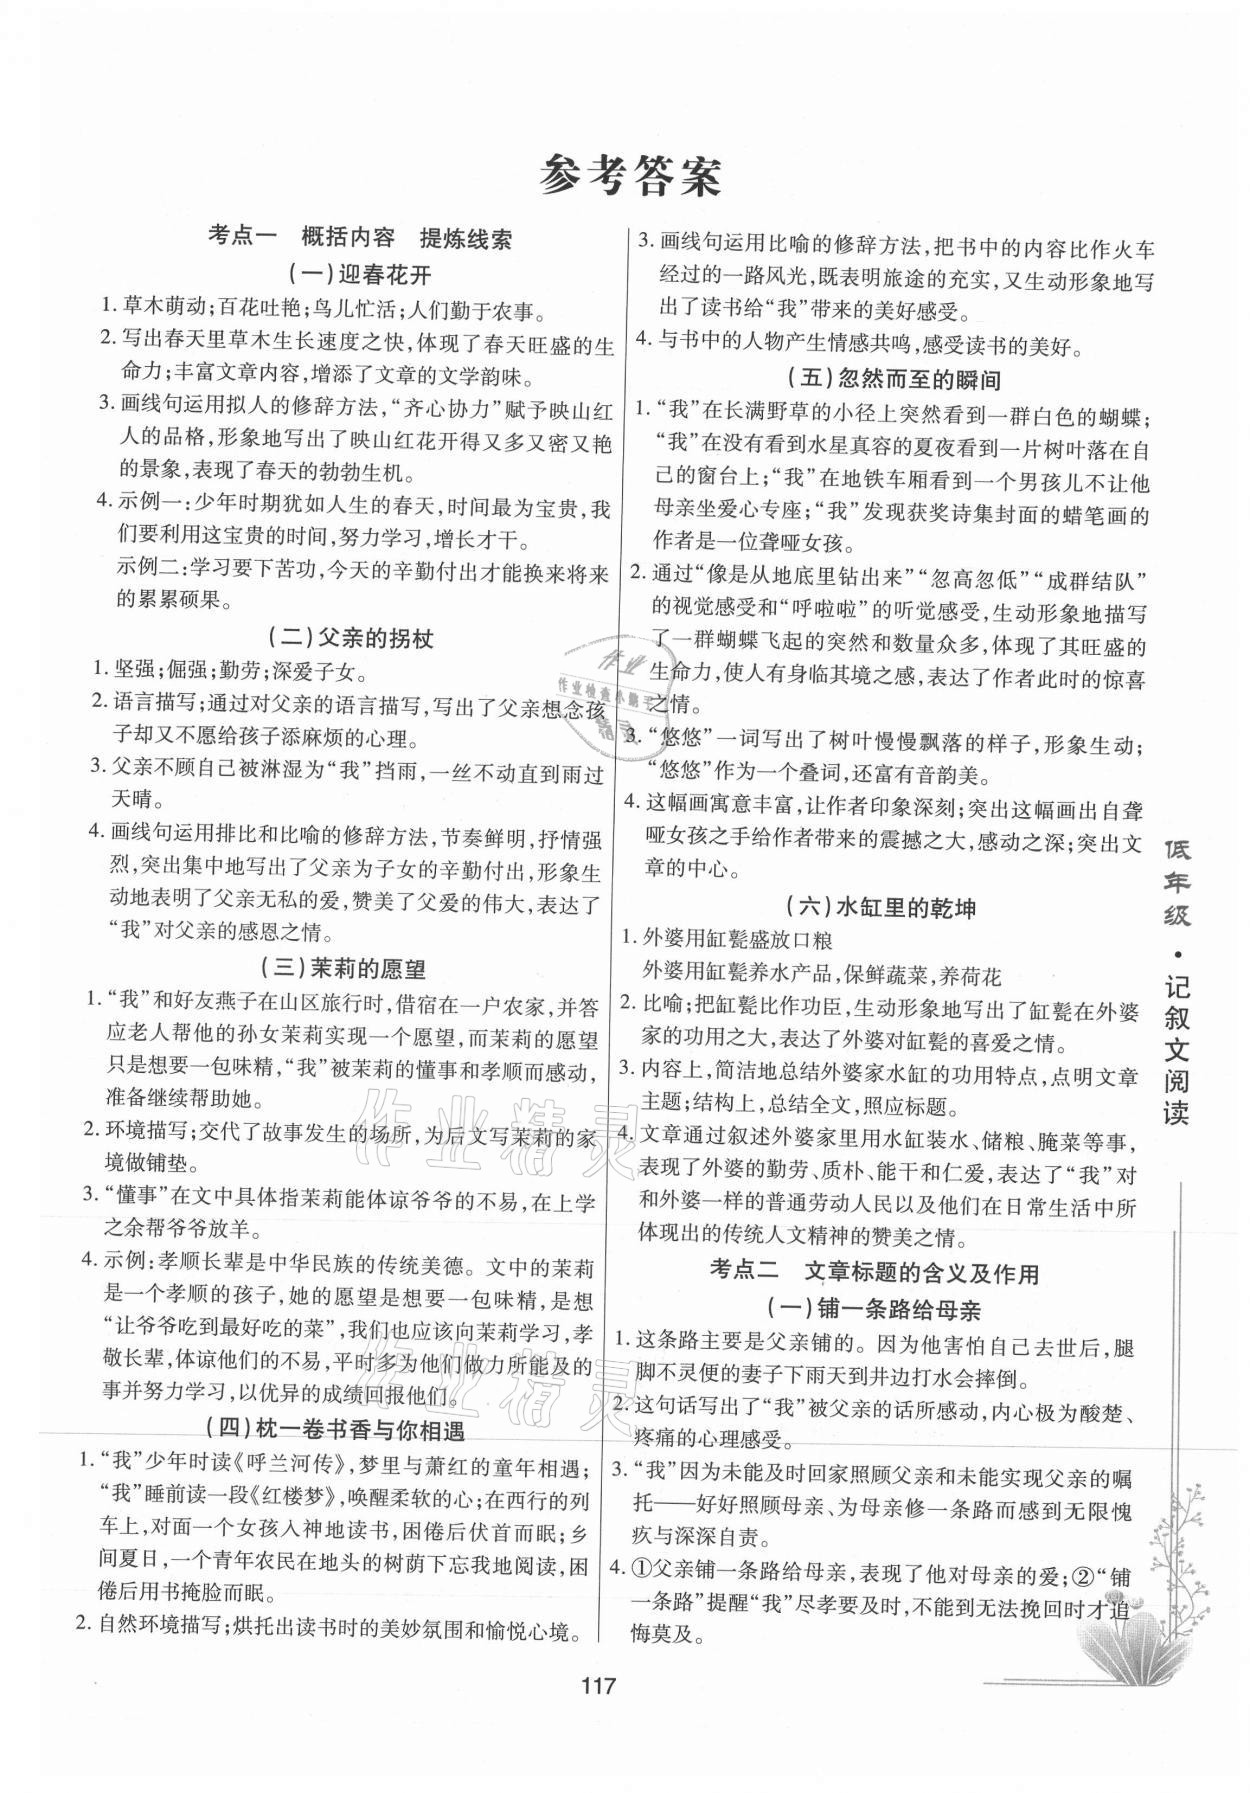 参考答案
考点一　概括内容　提炼线索
(一)迎春花开
1. 草木萌动;百花吐艳;鸟儿忙活;人们勤于农事。
2. 写出春天里草木生长速度之快,体现了春天旺盛的生
命力;丰富文章内容,增添了文章的文学韵味。
3. 画线句运用拟人的修辞方法,“齐心协力”赋予映山红
人的品格,形象地写出了映山红花开得又多又密又艳
的景象,表现了春天的勃勃生机。
4. 示例一:少年时期犹如人生的春天,时间最为宝贵,我
们要利用这宝贵的时间,努力学习,增长才干。
示例二:学习要下苦功,今天的辛勤付出才能换来将来
的累累硕果。
(二)父亲的拐杖
1. 坚强;倔强;勤劳;深爱子女。
2. 语言描写;通过对父亲的语言描写,写出了父亲想念孩
子却又不愿给孩子添麻烦的心理。
3. 父亲不顾自己被淋湿为“我”挡雨,一丝不动直到雨过
天晴。
4. 画线句运用排比和比喻的修辞方法,节奏鲜明,抒情强
烈,突出集中地写出了父亲为子女的辛勤付出,形象生
动地表明了父亲无私的爱,赞美了父爱的伟大,表达了
“我”对父亲的感恩之情。
(三)茉莉的愿望
1. “我”和好友燕子在山区旅行时,借宿在一户农家,并答
应老人帮他的孙女茉莉实现一个愿望,而茉莉的愿望
只是想要一包味精,“我”被茉莉的懂事和孝顺而感动,
准备继续帮助她。
2. 环境描写;交代了故事发生的场所,为后文写茉莉的家
境做铺垫。
3. “懂事”在文中具体指茉莉能体谅爷爷的不易,在上学
之余帮爷爷放羊。
4. 示例:孝顺长辈是中华民族的传统美德。文中的茉莉
是一个孝顺的孩子,她的愿望是想要一包味精,是想
“让爷爷吃到最好吃的菜”,我们也应该向茉莉学习,孝
敬长辈,体谅他们的不易,平时多为他们做力所能及的
事并努力学习,以优异的成绩回报他们。
(四)枕一卷书香与你相遇
1. “我”少年时读《呼兰河传》,梦里与萧红的童年相遇;
“我”睡前读一段《红楼梦》,唤醒柔软的心;在西行的列
车上,对面一个女孩入神地读书,困倦后伏首而眠;乡
间夏日,一个青年农民在地头的树荫下忘我地阅读,困
倦后用书掩脸而眠。
2. 自然环境描写;烘托出读书时的美妙氛围和愉悦心境。
3. 画线句运用比喻的修辞方法,把书中的内容比作火车
经过的一路风光,既表明旅途的充实,又生动形象地写
出了读书给“我”带来的美好感受。
4. 与书中的人物产生情感共鸣,感受读书的美好。
(五)忽然而至的瞬间
1. “我”在长满野草的小径上突然看到一群白色的蝴蝶;
“我”在没有看到水星真容的夏夜看到一片树叶落在自
己的窗台上;“我”在地铁车厢看到一个男孩儿不让他
母亲坐爱心专座;“我”发现获奖诗集封面的蜡笔画的
作者是一位聋哑女孩。
2. 通过“像是从地底里钻出来”“忽高忽低”“成群结队”
的视觉感受和“呼啦啦”的听觉感受,生动形象地描写
了一群蝴蝶飞起的突然和数量众多,体现了其旺盛的
生命力,使人有身临其境之感,表达了作者此时的惊喜
之情。
3. “悠悠”一词写出了树叶慢慢飘落的样子,形象生动;
“悠悠”作为一个叠词,还富有音韵美。
4. 这幅画寓意丰富,让作者印象深刻;突出这幅画出自聋
哑女孩之手给作者带来的震撼之大,感动之深;突出文
章的中心。
(六)水缸里的乾坤
1. 外婆用缸甏盛放口粮
外婆用缸甏养水产品,保鲜蔬菜,养荷花
2. 比喻;把缸甏比作功臣,生动形象地写出了缸甏在外婆
家的功用之大,表达了外婆对缸甏的喜爱之情。
3. 内容上,简洁地总结外婆家水缸的功用特点,点明文章
主题;结构上,总结全文,照应标题。
4. 文章通过叙述外婆家里用水缸装水、储粮、腌菜等事,
表现了外婆的勤劳、质朴、能干和仁爱,表达了“我”对
和外婆一样的普通劳动人民以及他们在日常生活中所
体现出的传统人文精神的赞美之情。
考点二　文章标题的含义及作用
(一)铺一条路给母亲
1. 这条路主要是父亲铺的。因为他害怕自己去世后,腿
脚不灵便的妻子下雨天到井边打水会摔倒。
2. 这句话写出了“我”被父亲的话所感动,内心极为酸楚、
疼痛的心理感受。
3. “我”因为未能及时回家照顾父亲和未能实现父亲的嘱
托——好好照顾母亲、为母亲修一条路而感到无限愧
疚与深深自责。
4. ①父亲铺一条路给母亲,表现了他对母亲的爱;②“铺
一条路”提醒“我”尽孝要及时,不能到无法挽回时才追
悔莫及。
低年级·记叙文阅读
117
作业
作业检查小助手
精灵
作业精灵
作业精灵